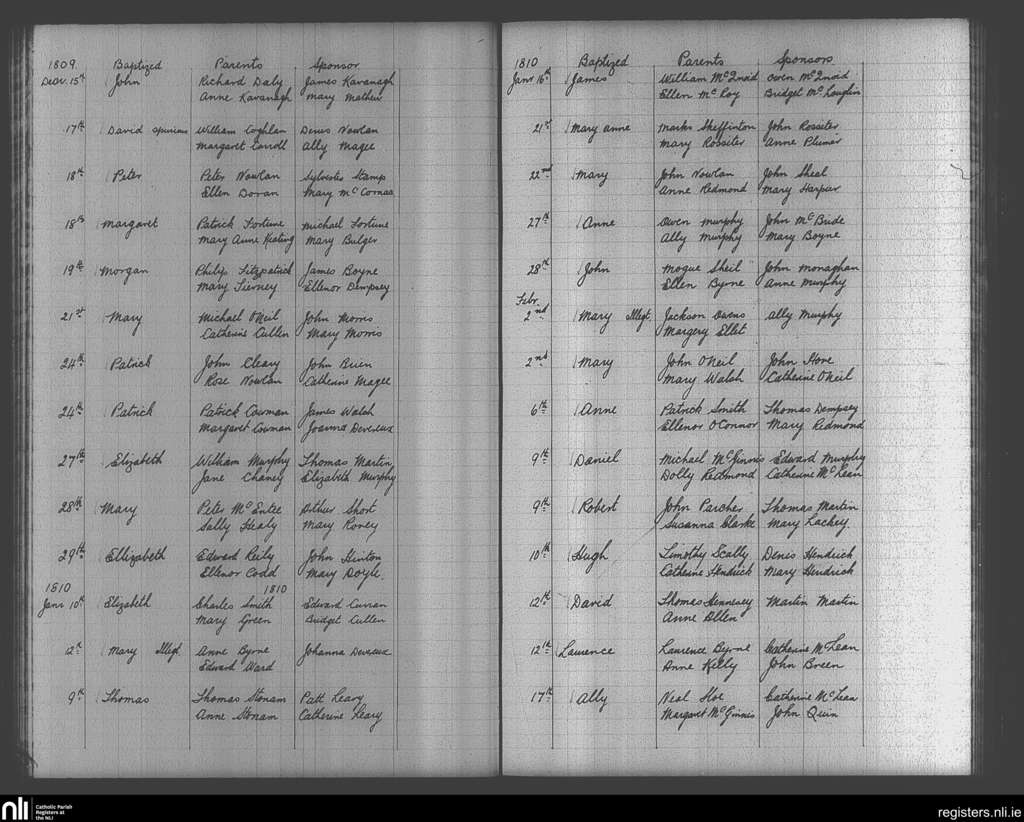 1809 Baptized Parents Sponsor
Decr. 15th John Richard Daly James Kavanagh
Anne Kavanagh Mary Mathew
17th David spurious William Coghlan Denis Nowlan
Margaret Carroll Ally Magee
18th Peter Peter Nowlan Sylvester Stamp
Ellen Doran Mary McCormac
18th Margaret Patrick Fortune Michael Fortune
Mary Anne Keating Mary Bulger
19th Morgan Philip Fitzpatrick James Boyne
Mary Tierney Ellenor Dempsey
21st Mary Michael ONeil John Morris
Catherine Cullen Mary Morris
24th Patrick John Cleary John Brien
Rose Nowlan Catherine Magee
24th Patrick Patrick Cowman James Walsh
Margaret Cowman Joanna Devereux
27th Elizabeth William Murphy Thomas Martin
Jane Chaney Elizabeth Murphy
28th Mary Peter McEntee Arthur Short
Sally Healy Mary Roney
29th Ellizabeth Edward Reily John Hinton
Ellenor Codd Mary Doyle
1810 1810
Janr 10th Elizabeth Charles Smith Edward Curran
Mary Green Bridget Cullen
12th Mary Illegt Anne Byrne Johanna Devereux
Edward Ward
9th Thomas Thomas Stonam Patt Leary
Anne Stonam Catherine Leary
1810 Baptized Parents Sponsors
Janr 16th James William McQuaid Owen McQuaid
Ellen McCoy Bridget McLouglin
21st Mary Anne Marks Skeffinton John Rossiter
Mary Rossiter Anne Plumer
22nd Mary John Nowlan John Sheal
Anne Redmond Mary Harpur
27th Anne Owen Murphy John McBride
Ally Murphy Mary Boyne
28th John Mogue Sheil John Monaghan
Ellen Byrne Anne Murphy
Febr
2nd Mary Illegt. Jackson Owens Ally Murphy
Margery Ellet
2nd Mary John ONeil John Hore
Mary Walsh Catherine ONeil
6th Anne Patrick Smith Thomas Dempsey
Ellenor OConnor Mary Redmond
9th Daniel Michael McGinnis Edward Murphy
Dolly Redmond Catherine McLean
9th Robert John Parcher Thomas Martin
Susanna Clarke Mary Lackey
10th Hugh Timothy Scally Denis Hendrick
Catherine Hendrick Mary Hendrick
12th David Thomas Hennesey Martin Martin
Anne Allen
12th Laurence Laurence Byrne Catherine McLean
Anne Kelly John Breen
17th Ally Neal Hoe Catherine McLean
Margaret McGinnis John Quin
nli Catholic Parish
Registers at
the NLI
registers.nli.ie